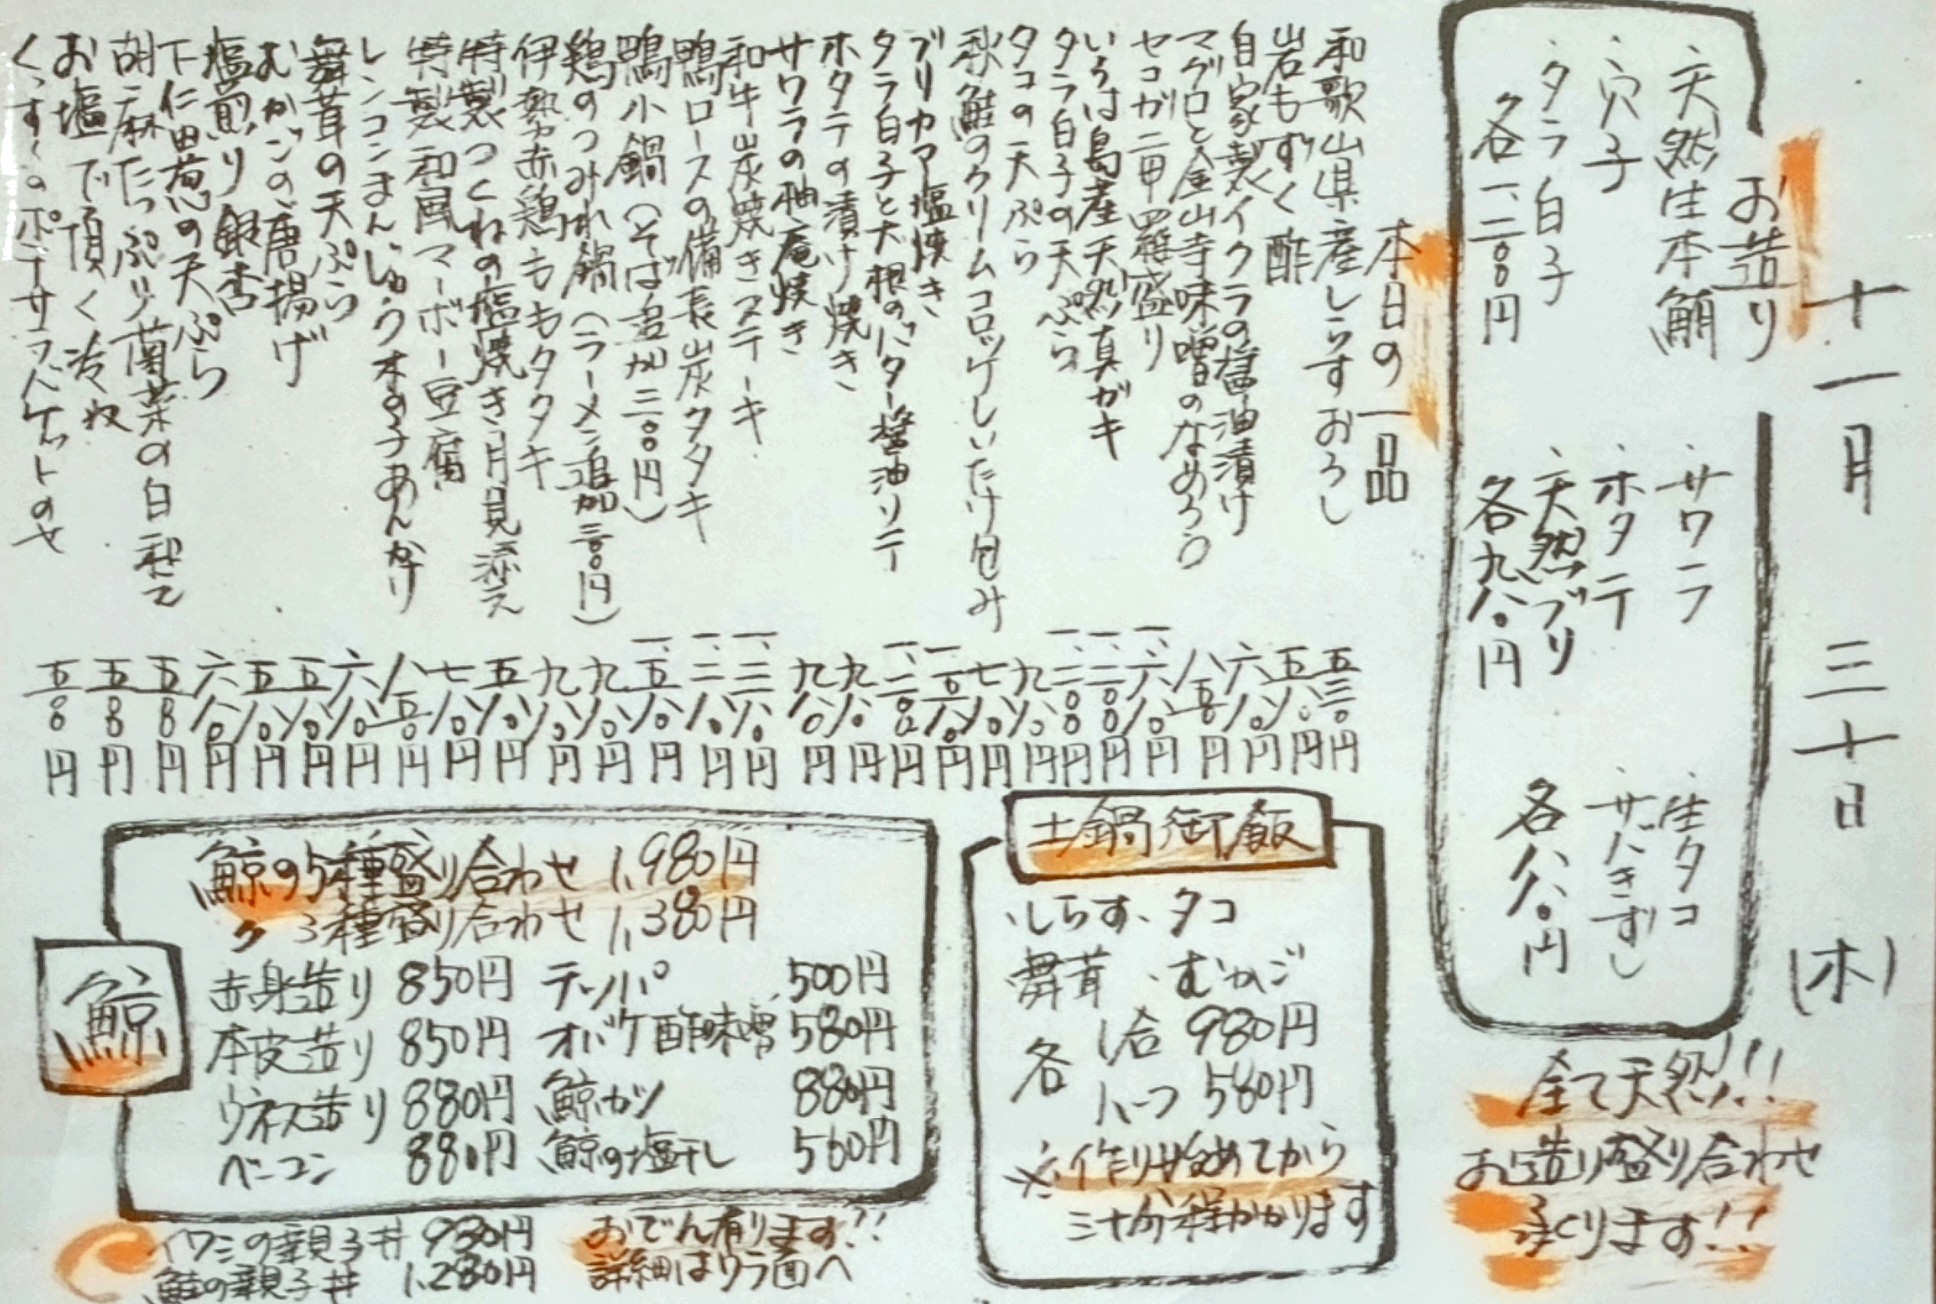 十一月三十日(木)
お造り
・天然生本鮪
・穴子
・タラ白子
各一、二〇〇円
・サワラ
・ホタテ
・天然ブリ
各九八〇円
・生タコ
・サバきずし
各八八〇円
全て天然!!!
お造り盛り合わせ
承くります!!
本日の一品
和歌山県産しらすおろし 五三〇円
岩もずく酢 五八〇円
自家製イクラの醤油漬け 六八〇円
マグロと金山寺味噌のなめろう 八五〇円
セコガニ甲羅盛り 一、六八〇円
いろは島産天然真ガキ 一、二〇〇円
タラ白子の天ぷら 一、二〇〇円
タコの天ぷら 九八〇円
秋鮭のクリームコロッケしいたけ包み 七八〇円
ブリカマ塩焼き
タラ白子と大根のバター醤油ソテー 一、二〇〇円
ホタテの漬け焼き 九八〇円
サワラの柚庵焼き 九八〇円
和牛炭焼きステーキ
鴨ロースの備長炭タタキ
鴨小鍋(そば追加三〇〇円) 一、五八〇円
鶏のつみれ鍋(ラーメン追加三〇〇円) 九八〇円
伊勢赤鶏ももタタキ 九八〇円
特製つくねの塩焼き月見添え 五八〇円
特製和風マーボー豆腐 七八〇円
レンコンまんじゅう木の子あんかけ 八五〇円
舞茸の天ぷら 六八〇円
むかごの唐揚げ 五八〇円
塩煎り銀杏 五八〇円
下仁田葱の天ぷら 六八〇円
胡麻たっぷり菊菜の白和え 五五〇円
お塩で頂く冷奴 五五〇円
くんすけのポテサラバケットのせ 五五〇円
土鍋御飯
・しらす・タコ
舞茸・むかご
各 1合 980円
ハーフ 580円
※作り始めてから
三十分程かかります
鯨
鯨の5種盛り合わせ 1,980円
〃 3種盛り合わせ 1,380円
赤身造り 850円 テッパ 500円
本皮造り 850円 オバケ酢味噌 580円
ウネス造り 880円 鯨カツ 880円
ベーコン 880円 鯨の塩干し 560円
イワシの親子丼 980円
鮭の親子丼 1,280円
おでん有ります!!
詳細はウラ面へ